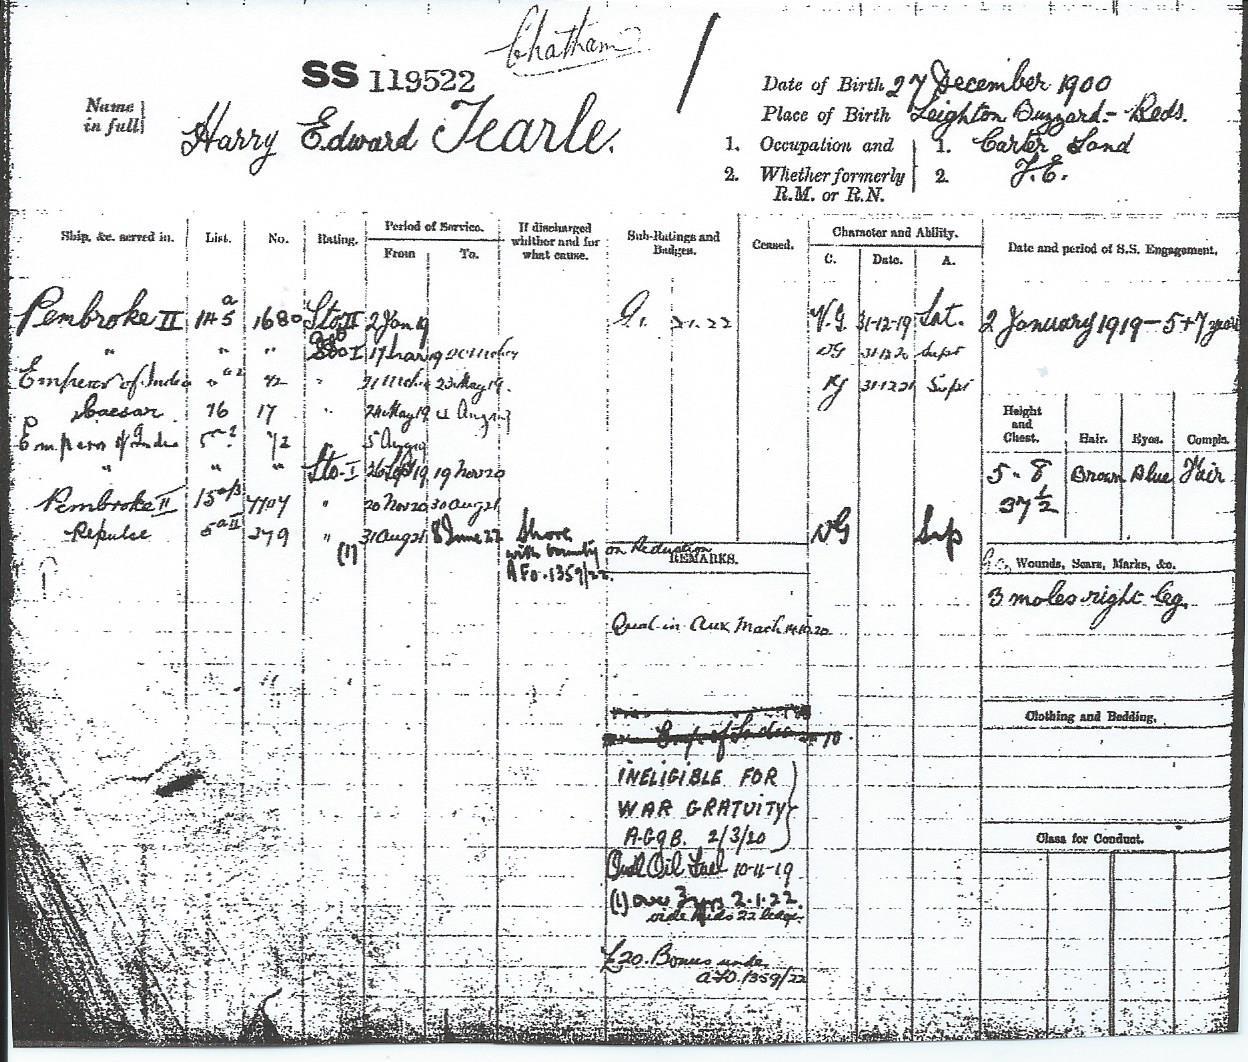 Chatham
SS 119522
Name in full
Harry Edward Tearle.
Date of Birth 27 December 1900
Place of Birth Leighton Buzzard - Beds.
1. Occupation and 1. Carter Sand
2. Whether formerly R.M. or R.N. 2.
Ship, &c. served in. List. No. Rating. Period of Service. From To. If discharged whither and for what cause. Sub-Ratings and Badges. Ceased. Character and Ability. C. Date. A. Date and period of S.S. Engagement.
Pembroke II 1680 Sto II 2 Jan 19 V.G. 31-12-19 Sat. 2 January 1919 - 5+7 years
" " " 19 VG 31-12-20
Emperor of India 42 " 23 May 19. 31-12-21
Caesar 76 17 " 24 May 19
Emperor of India
" " " Sto-I 26 Sept 19 19 Nov 20
Pembroke II 7707 " 20 Nov 20 30 Aug 21
Repulse 379 " 31 Aug 21 8 June 22 Shore VG Sup
(1) with bounty on Reduction
AFO.1359/22.
Height and Chest. Hair. Eyes. Compln.
5-8 Brown Blue Fair
37 1/2
Wounds, Scars, Marks, &c.
3 moles right leg.
REMARKS.
Qual in Aux Mach
Clothing and Bedding.
Emp of India
INELIGIBLE FOR
WAR GRATUITY
2/3/20
Class for Conduct.
Qual Oil Fuel 10-11-19
(1) over 3 yrs 2.1.22.
£20. Bonus under
AFO.1359/22